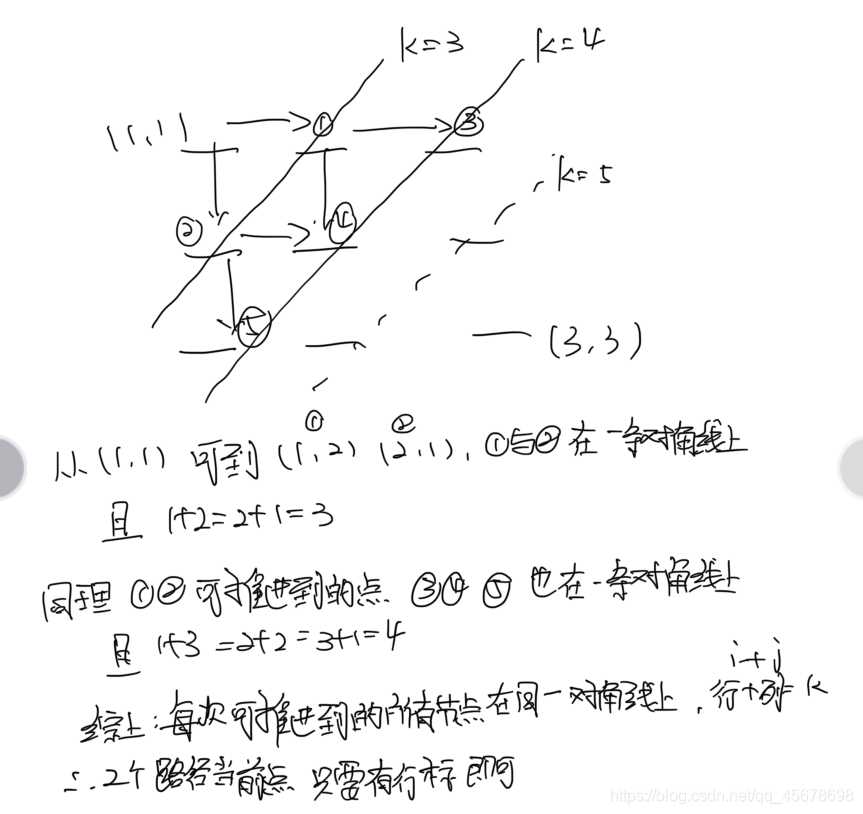 k=3 k=4
(1,1) ① ③
k=5
② ④
⑤ (3,3)
① ②
从(1,1) 可到 (1,2) (2,1), ①与②在一条对角线上
且 1+2=2+1=3
同理 ①② 可推进到的点 ③④⑤ 也在一条对角线上
且 1+3=2+2=3+1=4
i+j
综上:每次可推进到的所有节点在同一对角线上,行+列=k
∴2个路径当前点 只要有行标即可
https://blog.csdn.net/qq_45678698